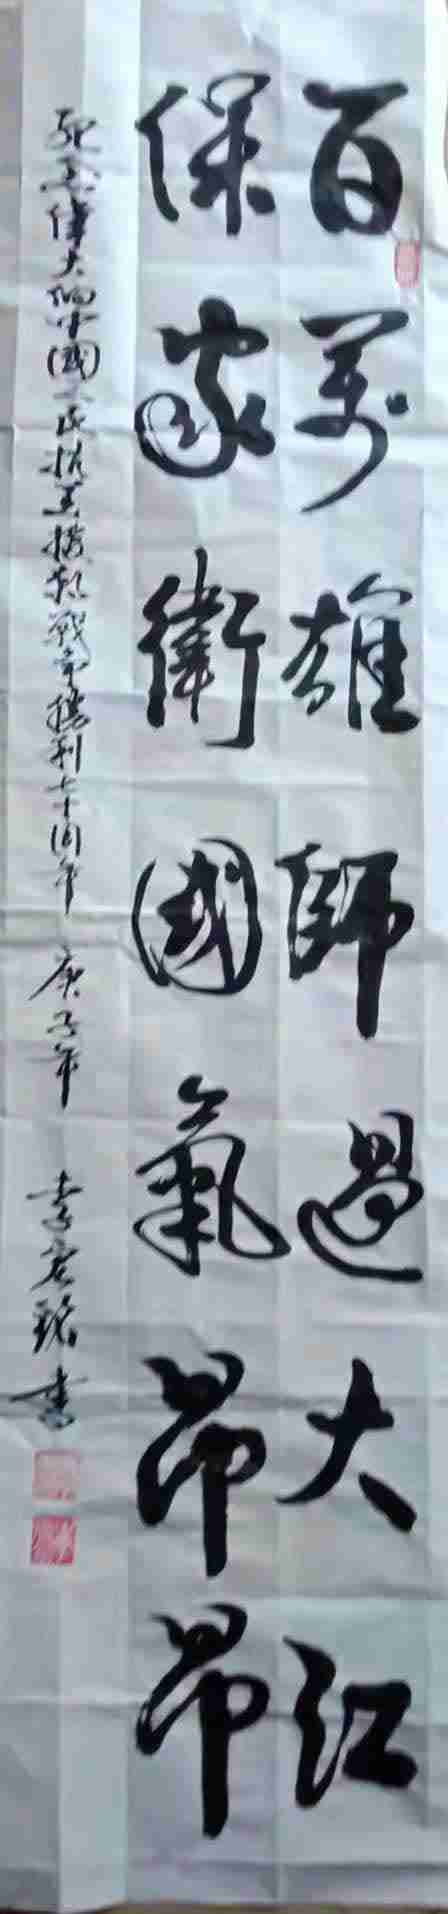 百萬雄師過大江
保家衛國氣昂昂
紀念偉大的中國人民抗美援朝戰爭勝利七十周年 庚子年 李宏銘書